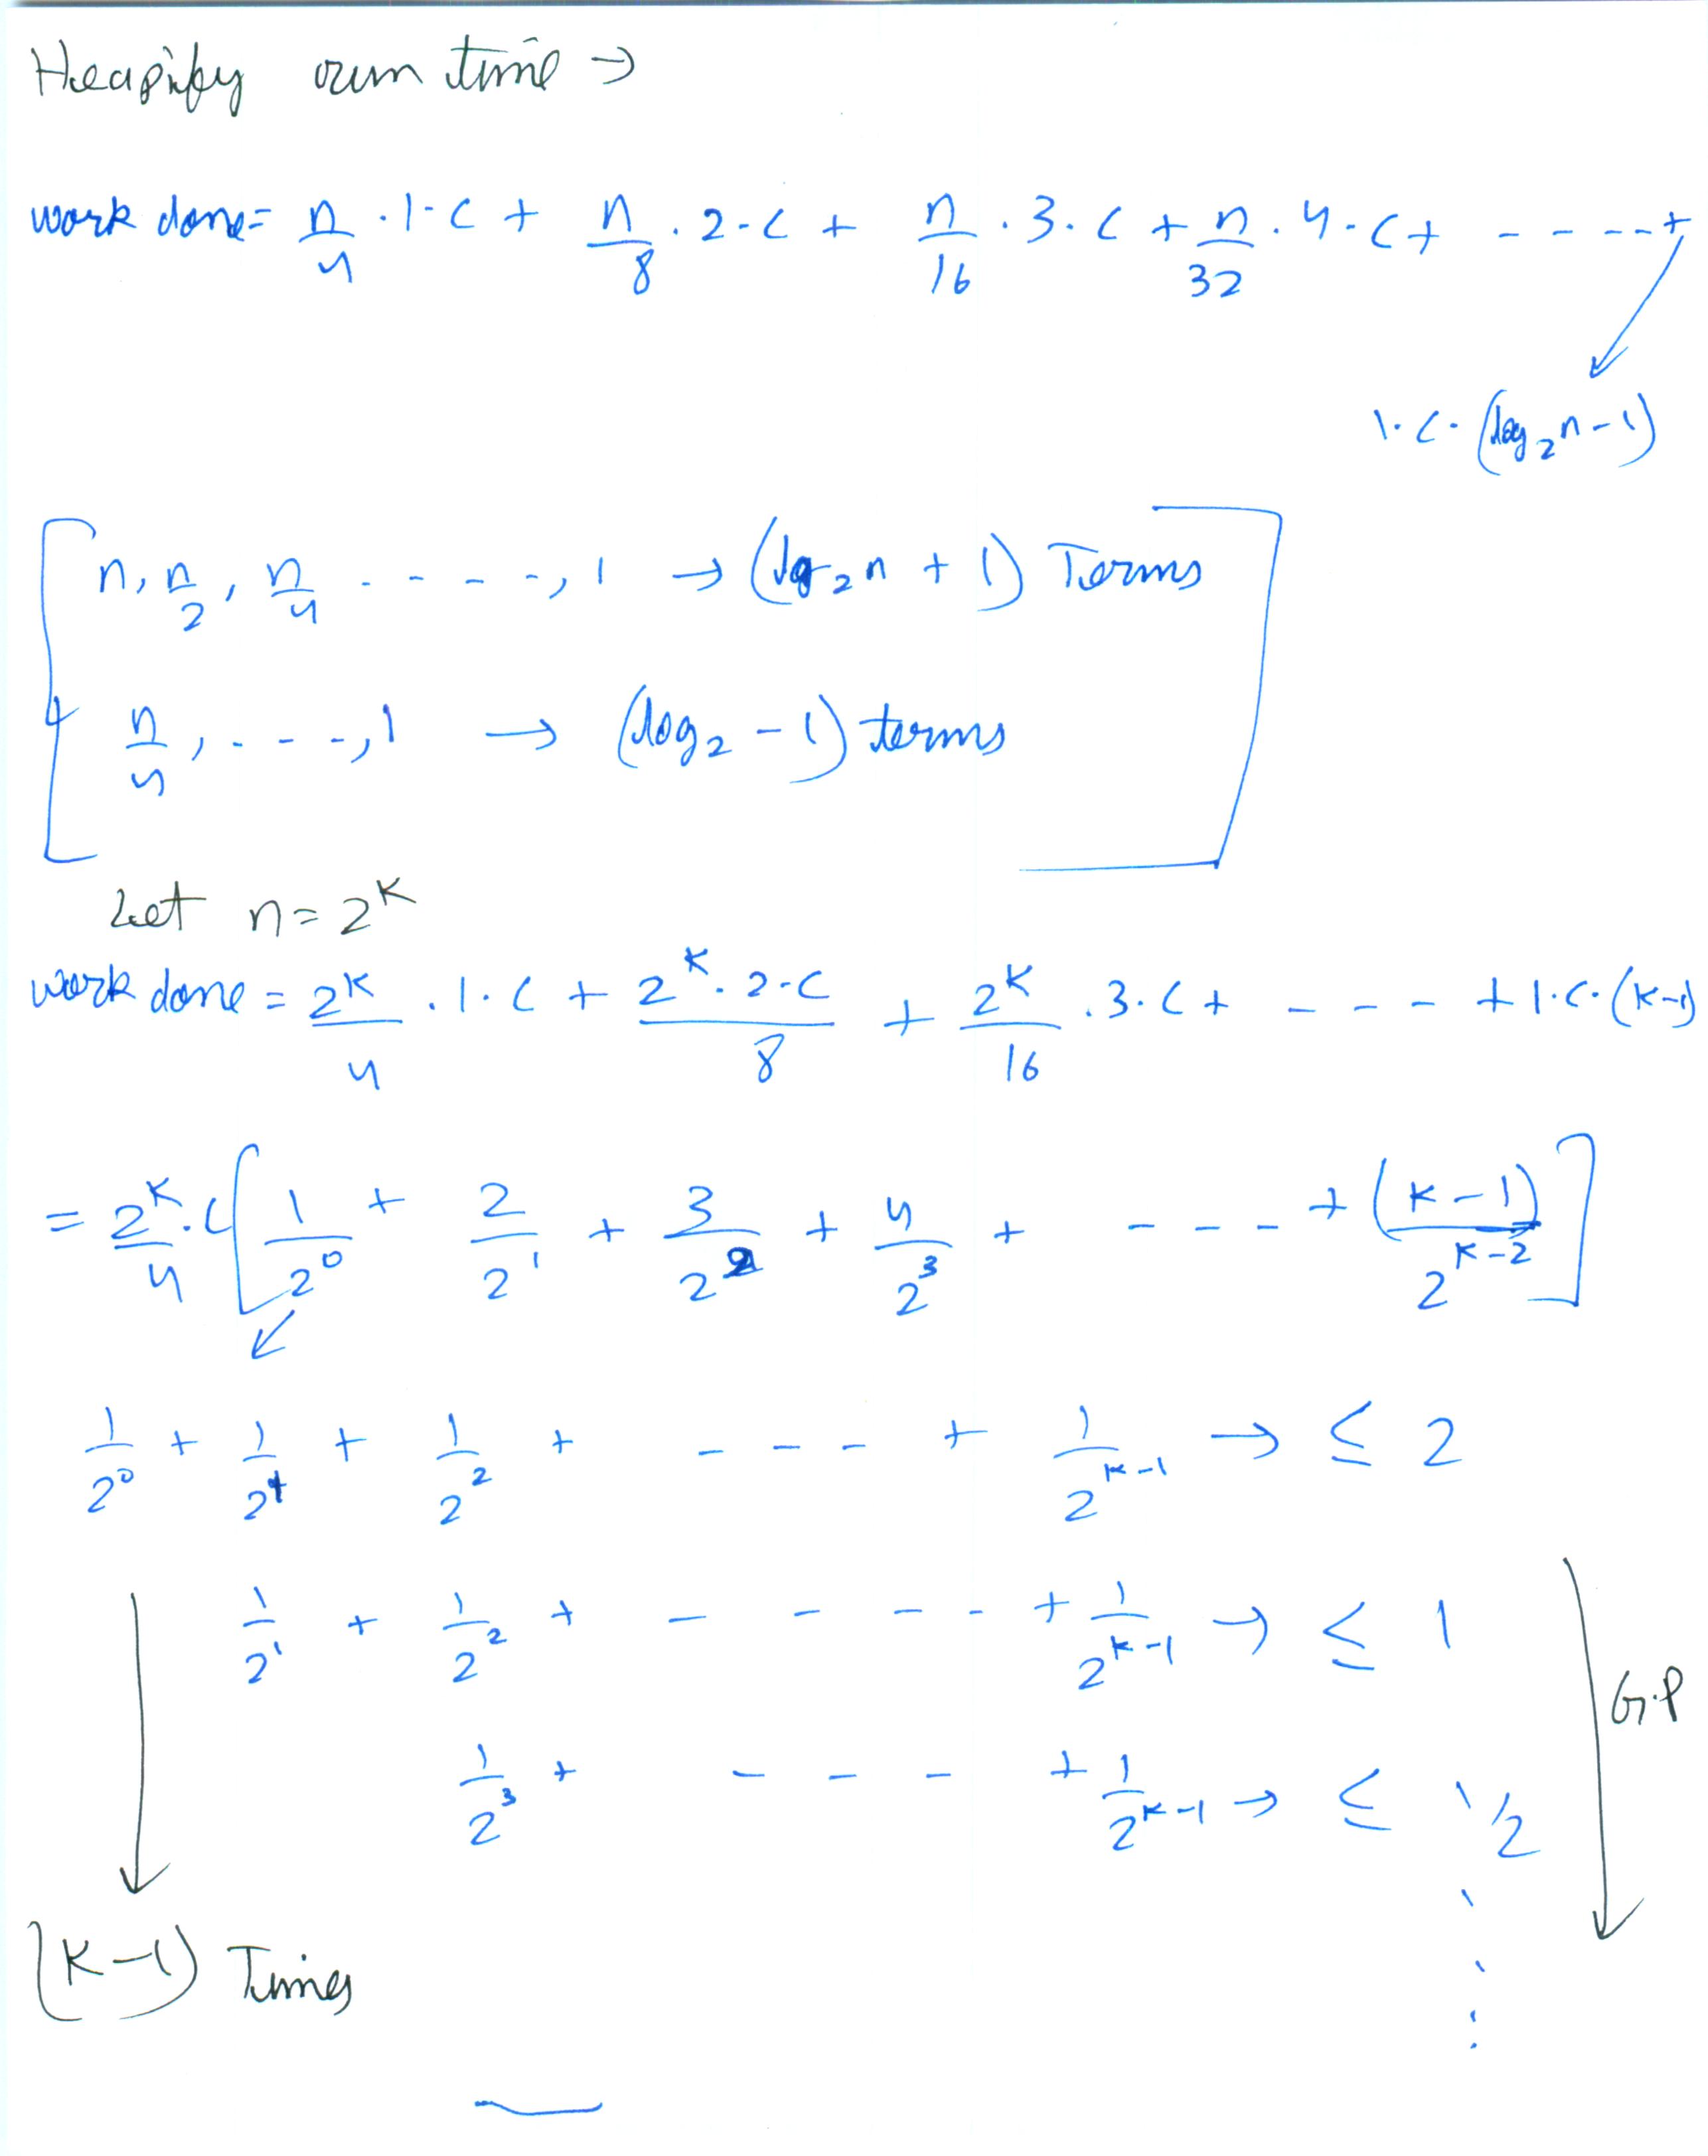 Heapify run time →
work done = n/4 · 1 · c + n/8 · 2 · c + n/16 · 3 · c + n/32 · 4 · c + - - - - - +
1 · c · (log₂n - 1)
n, n/2, n/4 - - - - -, 1 → (log₂n + 1) Terms
n/4, - - - -, 1 → (log₂ - 1) terms
Let n = 2^K
work done = 2^K/4 · 1 · c + 2^K · 2 · c/8 + 2^K/16 · 3 · c + - - - + 1 · c · (K-1)
= 2^K/4 · c [1/2^0 + 2/2^1 + 3/2^2 + 4/2^3 + - - - + (K-1)/2^(K-2)]
1/2^0 + 1/2^1 + 1/2^2 + - - - + 1/2^(K-1) → ≤ 2
1/2^1 + 1/2^2 + - - - - + 1/2^(K-1) → ≤ 1
G.P
1/2^3 + - - - + 1/2^(K-1) → ≤ 1/2
(K-1) Times